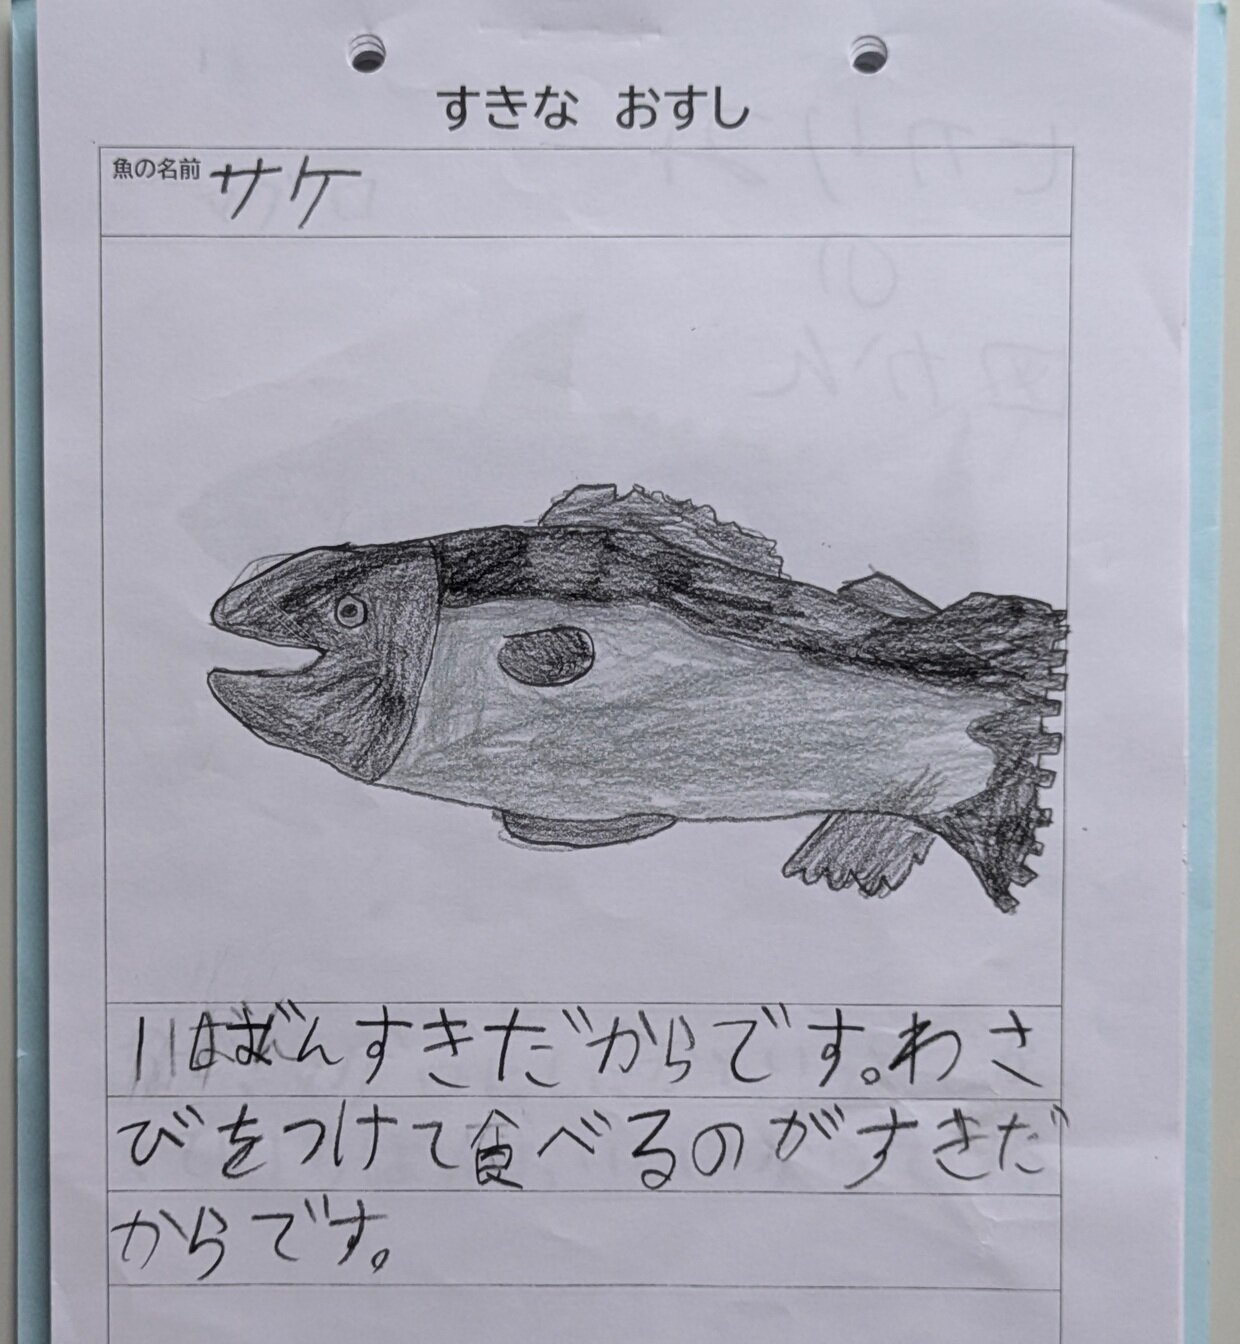 すきな おすし
魚の名前 サケ
いばんすきだからです。わさ
びをつけて食べるのがすきだ
からです。